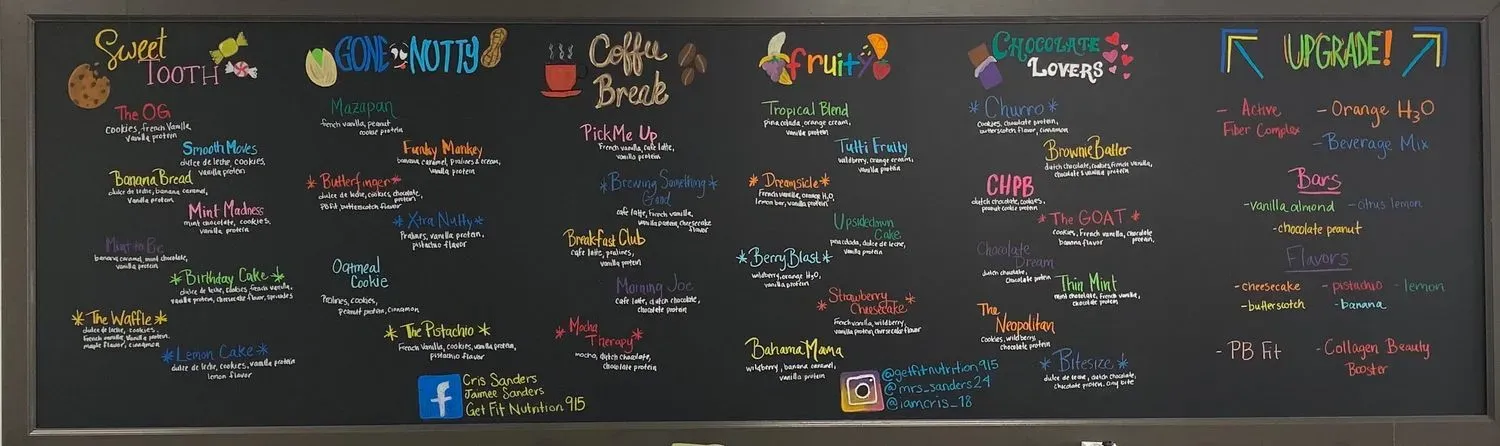 Sweet
TOOTH
The OG
cookies, french Vanilla
vanilla protein
Smooth Moves
dulce de leche, cookies,
vanilla protein
Banana Bread
dulce de leche, banana caramel,
Vanilla protein
Mint Madness
mint chocolate, cookies,
vanilla protein
Mint to Be
banana caramel, mint chocolate,
vanilla protein
*Birthday Cake*
dulce de leche, cookies, french vanilla,
vanilla protein, cheesecake flavor, sprinkles
*The Waffle*
dulce de leche, cookies,
French vanilla, vanilla protein,
maple flavor, cinnamon
*Lemon Cake*
dulce de leche, cookies, vanilla protein
lemon flavor
GONE NUTTY
Mazapan
french vanilla, peanut
cookie protein
Funky Monkey
banana caramel, pralines & cream,
vanilla protein
*Butterfinger*
dulce de leche, cookies, chocolate
protein,
PB fit, butterscotch flavor
*Xtra Nutty*
Pralines, vanilla protein,
pistachio flavor
Oatmeal
Cookie
Pralines, cookies,
Peanut protein, cinnamon
*The Pistachio*
French Vanilla, cookies, vanilla protein,
pistachio flavor
Coffee
Break
Pick Me Up
French vanilla, cafe latte,
vanilla protein
*Brewing Something*
Good
cafe latte, french vanilla,
vanilla protein, cheesecake
flavor
Breakfast Club
cafe latte, pralines,
vanilla protein
Morning Joe
Cafe latte, dutch chocolate,
chocolate protein
*Mocha
Therapy*
mocha, dutch chocolate,
chocolate protein
fruity
Tropical Blend
pina colada, orange cream,
vanilla protein
Tutti Fruity
wildberry, orange cream,
vanilla protein
*Dreamsicle*
French vanilla, orange H2O,
lemon bar, vanilla protein
Upsidedown
Cake
pina colada, dulce de leche,
vanilla protein
*Berry Blast*
wildberry, orange H3O,
vanilla protein
*Strawberry
Cheesecake*
French vanilla, wildberry
vanilla protein, cheesecake flavor
Bahama Mama
wildberry, banana caramel,
vanilla protein
CHOCOLATE
LOVERS
*Churro*
Cookies, chocolate protein,
butterscotch flavor, cinnamon
Brownie Batter
dutch chocolate, cookies, french vanilla,
chocolate & vanilla protein
CHPB
dutch chocolate, cookies,
peanut cookie protein
*The GOAT*
cookies, French vanilla, chocolate
protein,
banana flavor
Chocolate
Dream
dutch chocolate,
Chocolate protein
Thin Mint
mint chocolate, french vanilla,
chocolate protein
The
Neopolitan
Cookies, wildberry,
chocolate protein
*Bitesize*
dulce de leche, dutch chocolate,
chocolate protein, any bite
UPGRADE!
- Active
Fiber Complex
- Orange H3O
- Beverage Mix
Bars
- vanilla almond
- citrus lemon
- chocolate peanut
Flavors
- cheesecake
- pistachio
- lemon
- butterscotch
- banana
- PB Fit
- Collagen Beauty
Booster
f
Cris Sanders
Jaimee Sanders
Get Fit Nutrition 915
@getfitnutrition915
@mrs_sanders24
@iamcris_18